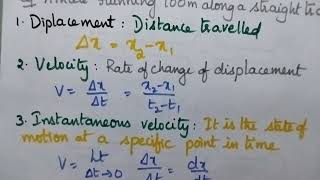 running 100m along a straight trac
1. Diplacement: Distance travelled
Δx = x₂-x₁
2. Velocity: Rate of change of displacement
V = Δx/Δt = x₂-x₁/t₂-t₁
3. Instantaneous velocity: It is the state of
motion at a specific point in time
V = Lt Δt→0 Δx/Δt = dx/dt